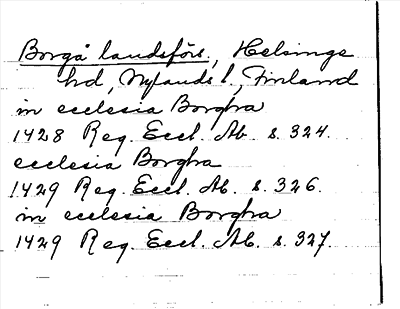 Borgå landsförs., Helsinge
hd, Nylands l., Finland
in ecclesia Borgha
1428 Reg. Eccl. Ab. s. 324.
ecclesia Borgha
1429 Reg. Eccl. Ab. s. 326.
in ecclesia Borgha
1429 Reg. Eccl. Ab. s. 327.